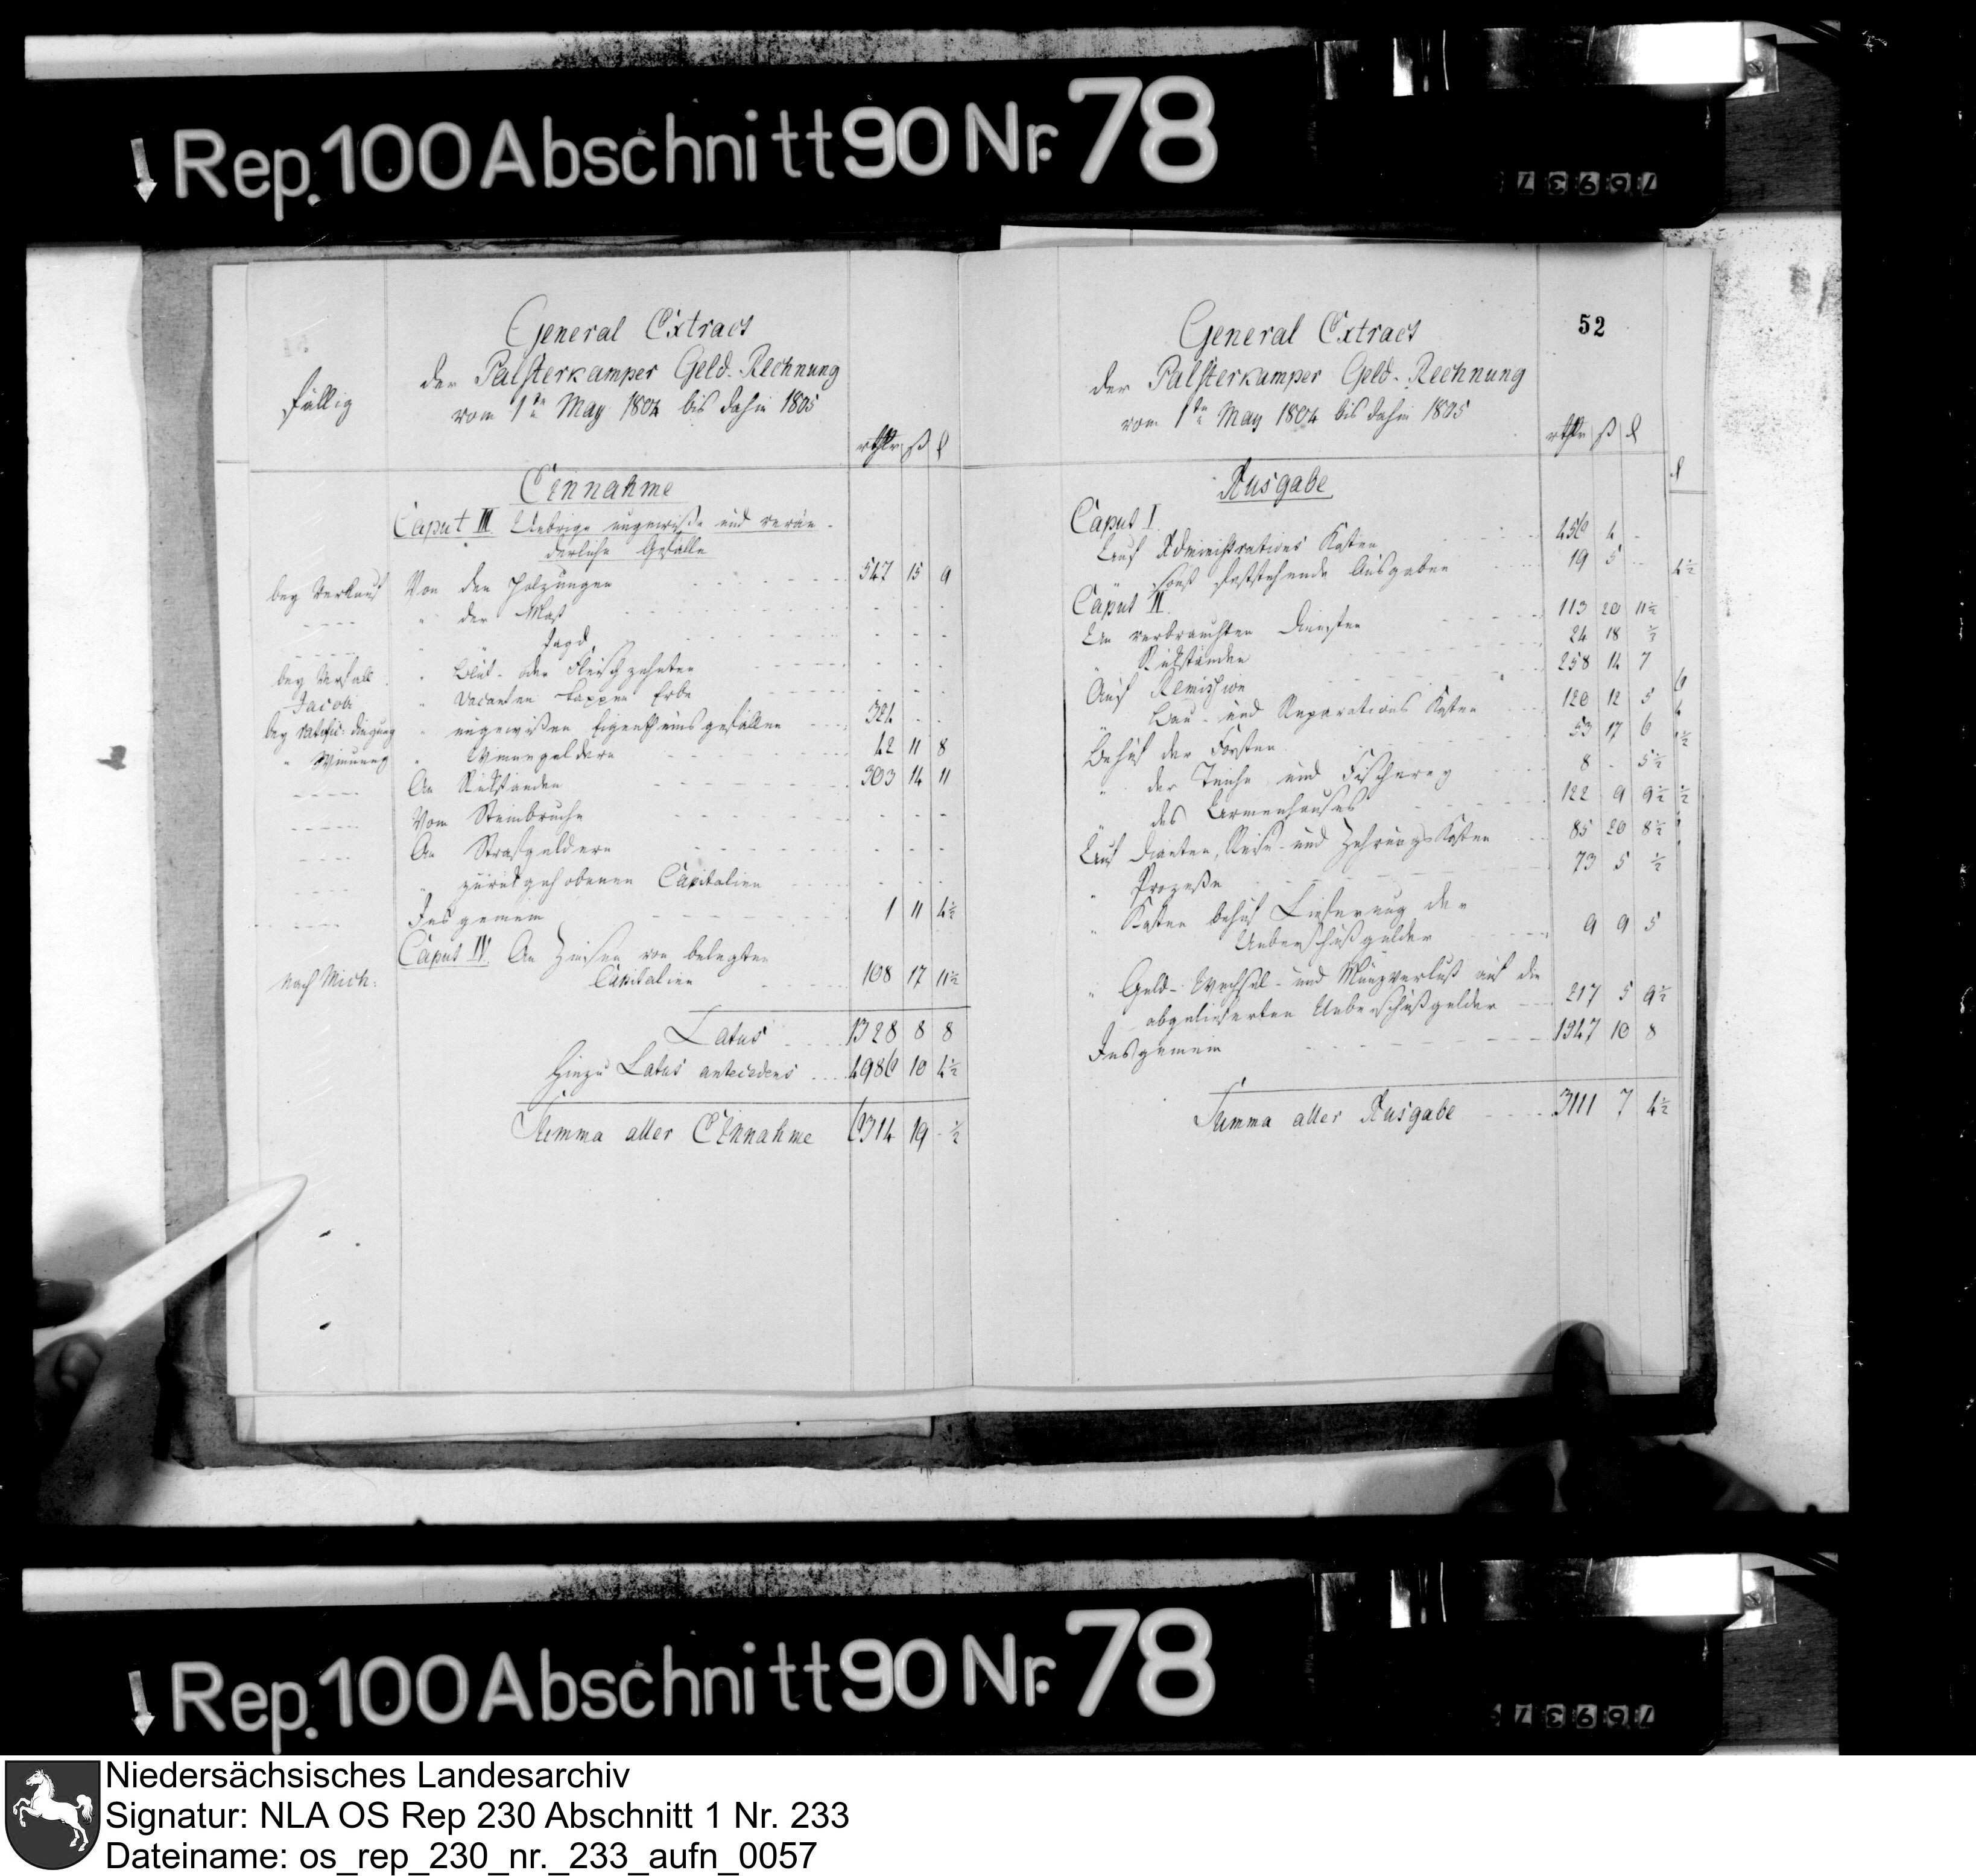 Rep. 100 Abschnitt 90 Nr. 78
76937
General Extract
der Palsterkamper Geld-Rechnung
vom 1ten May 1804 bis dahin 1805
fällig
rthlr ß d
Einnahme
Caput III. Uebrige ungewisse und verän-
derliche Gefälle
bey Verkauf Von den Holzungen 547 15 9
---- " der Mast - - -
---- " " Jagd - - -
bey Verfall " Blut- oder Fleischzehnten - - -
Jacobi " vacanten Erbe - - -
bey ratific: dingung " ungewissen Eigenthumsgefällen 324 - -
" Winnung " Winngeldern 42 11 8
---- An Rükständen 303 14 11
---- Vom Steinbruche - - -
---- An Strafgeldern - - -
---- " zurükgehobenen Capitalien - - -
---- Insgemein 1 11 4½
Caput IV. An Zinsen von belegten
nach Mich: Capitalien 108 17 11½
Latus 1328 8 8
Hinzu Latus antecedens 4986 10 4½
Summa aller Einnahme 6314 19 - ½
52
General Extract
der Palsterkamper Geld-Rechnung
vom 1ten May 1804 bis dahin 1805
rthlr ß d
Ausgabe
Caput I.
Auf Administrations Kosten 456 4 -
" sonst feststehende Ausgaben 19 5 -
Caput II.
An verbrauchten Diensten 113 20 11½
" Rükständen 24 18 ½
Auf Remission 258 14 7
" Bau- und Reparations Kosten 120 12 5
Behuf der Forsten 53 17 6
" der Teiche und Fischerey 8 - 5½
" des Armenhauses 122 9 9½
Auf Diaeten, Reise- und Zehrungs Kosten 85 20 8½
" Prozesse 73 5 ½
" Kosten behuf Lieferung der
Ueberschußgelder 9 9 5
" Geld-Wechsel- und Münzverlust auf die
abgelieferten Ueberschußgelder 217 5 9½
Insgemein 1547 10 8
Summa aller Ausgabe 3111 7 4½
Rep. 100 Abschnitt 90 Nr. 78
76937
Niedersächsisches Landesarchiv
Signatur: NLA OS Rep 230 Abschnitt 1 Nr. 233
Dateiname: os_rep_230_nr._233_aufn_0057